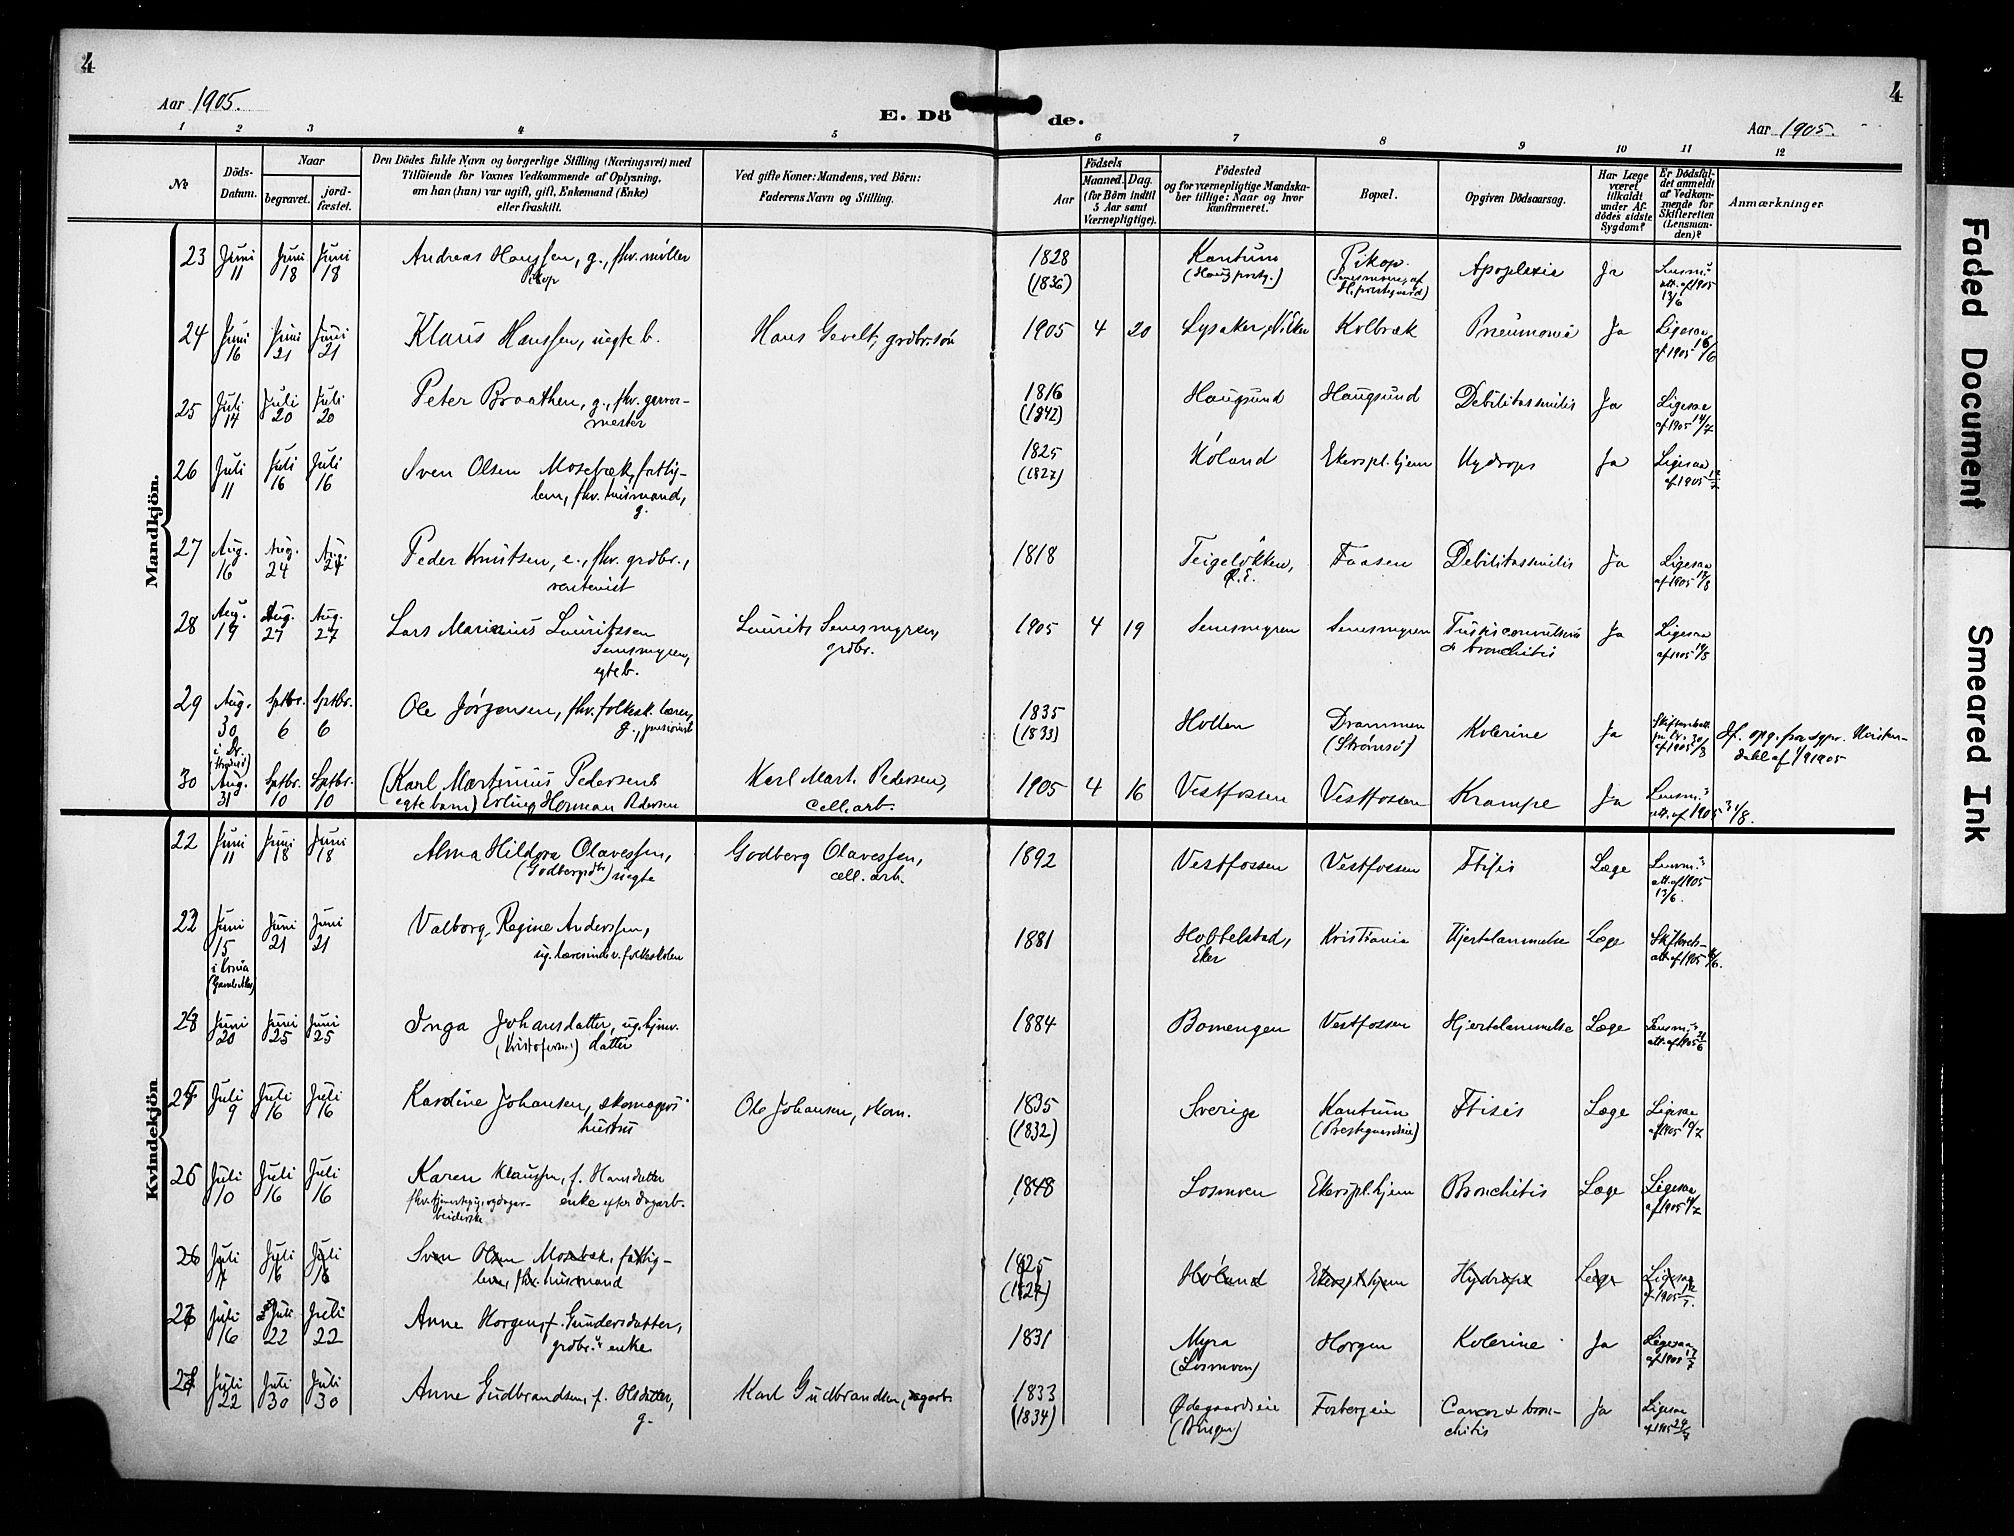 4
4
Aar 1905.
E. Dö de.
Aar 1905.
1 2 3 4 5 6 7 8 9 10 11 12
№
Döds-Datum.
Naar
begravet.
jord-fæstet.
Den Dödes fulde Navn og borgerlige Stilling (Næringsvei) med
Tilföiende for Voxnes Vedkommende af Oplysning,
om han (hun) var ugift, gift, Enkemand (Enke)
eller fraskilt.
Ved gifte Koner: Mandens, ved Börn:
Faderens Navn og Stilling.
Födsels
Aar
Maaned. Dag.
(for Börn indtil
5 Aar samt
Værnepligtige).
Födested
og for værnepligtige Mandska-
ber tillige: Naar og hvor
konfirmeret.
Bopæl.
Opgiven Dödsaarsag.
Har Læge
været
tilkaldt
under Af-
dödes sidste
Sygdom?
Er Dödsfal-
det anmeldt
af Vedkom-
mende for
Skifteretten
(Lensman-
den)?
Anmærkninger
Mandkjön.
23 Juni 11 Juni 18 Juni 18 Andreas Hanssen, g., fhv. møller 1828 (1836) Kantum Pikop. Apoplexia Ja Lensm.s att. af 1905 13/6
Pikop
24 Juni 16 Juni 21 Juni 21 Klaus Hanssen, uegte b. Hans Gevelt, grdbr.søn 1905 4 20 Lysaker, N. Eker Kolbræk Pneumonia Ja Ligesaa af 1905 16/6
25 Juli 14 Juli 20 Juli 20 Peter Braathen, g., fhv. garver-
mester 1816 (1842) Haugsund Haugsund Debilitas senilis Ja Ligesaa af 1905 14/7
26 Juli 11 Juli 16 Juli 16 Sven Olsen Mosebæk, fattig-
lem, fhv. husmand,
g. 1825 (1827) Høland Ekers pl.hjem Hydrops Ja Ligesaa af 1905 12/7
27 Aug. 16 Aug. 24 Aug. 24 Peder Knutsen, e., fhv. grdbr.,
rentenist 1818 Teigeløkken, Ø.E. Faasen Debilitas senilis Ja Ligesaa af 1905 17/8
28 Aug. 19 Aug. 27 Aug. 27 Lars Marinius Lauritssen
Semsmyren,
egte b. Laurits Semsmyren,
grdbr. 1905 4 19 Semsmyren Semsmyren Tussis convulsiva
& bronchitis Ja Ligesaa af 1905 19/8
29 Aug. 30 Sptbr. 6 Sptbr. 6 Ole Jørgensen, fhv. folkesk. lærer,
g., pensionist 1835 (1833) Holten Drammen (Strømsø) Kolerine Ja
30 Aug. 31 Sptbr. 10 Sptbr. 10 (Karl Martinius Pedersens
egte barn) Erling Herman Pedersen Karl Mart. Pedersen,
cell.arb. 1905 4 16 Vestfossen Vestfossen Krampe Ja Lensm.s att. af 1905 31/8.
Kvindekjön
22 Juni 11 Juni 18 Juni 18 Alma Hildora Olavessen,
uegte Godberg Olavessen,
cell. arb. 1892 Vestfossen Vestfossen Ftisis Læge Lensm.s att. af 1905 13/6.
22 Juni 15 Juni 21 Juni 21 Valborg Regine Anderssen,
ug. lærerinde v. folkeskolen 1881 Hobbelstad,
Eker Kristiania Hjertelammelse Læge Skifterets-
att. af 1905
23 Juni 20 Juni 25 Juni 25 Inga Johansdatter, ug. hjmv.
datter 1884 Bomengen Vestfossen Hjertelammelse Læge Lensm.s att. af 1905
24 Juli 9 Juli 16 Juli 16 Karoline Johansen, skomagers
hustru Ole Johansen, skom. 1835 (1832) Sverige Kantum Ftisis Læge Ligesaa af 1905 10/7
25 Juli 10 Juli 16 Juli 16 Karen Klaussen, f. Hansdatter
enke efter dagarb. 1848 Losmoen Ekers pl.hjem Bronchitis Læge Ligesaa af 1905
26 Juli 11 Juli 16 Juli 16 Sven Olsen Mosebæk, fattig-
lem, fhv. husmand 1825 (1827) Høland Ekers pl.hjem Hydrops Læge Ligesaa af 1905 12/7.
26 Juli 16 Juli 22 Juli 22 Anne Horgen, f. Gundersdatter,
grdbr.s enke 1831 Myra
(Losmoen) Horgen Kolerine Ja Ligesaa af 1905 17/7
27 Juli 22 Juli 30 Juli 30 Anne Gudbrandsen, f. Olsdatter,
g. Karl Gudbrandsen, dagarb. 1833 (1834) Ødegaardseie Fosbergeie Cancer & bron-
chitis Ja Ligesaa af 1905 24/7
Faded Document
Smeared Ink